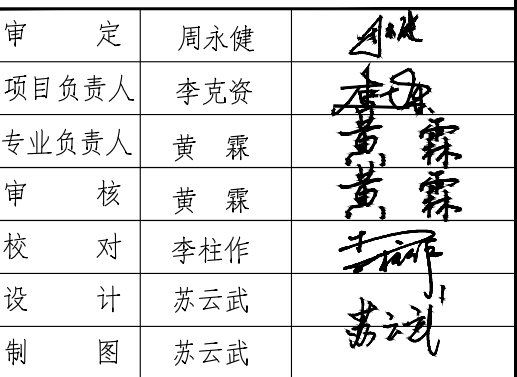 审 定 周永健
项目负责人 李克资
专业负责人 黄 霖 黄 霖
审 核 黄 霖 黄 霖
校 对 李柱作 李柱作
设 计 苏云武 苏云武
制 图 苏云武